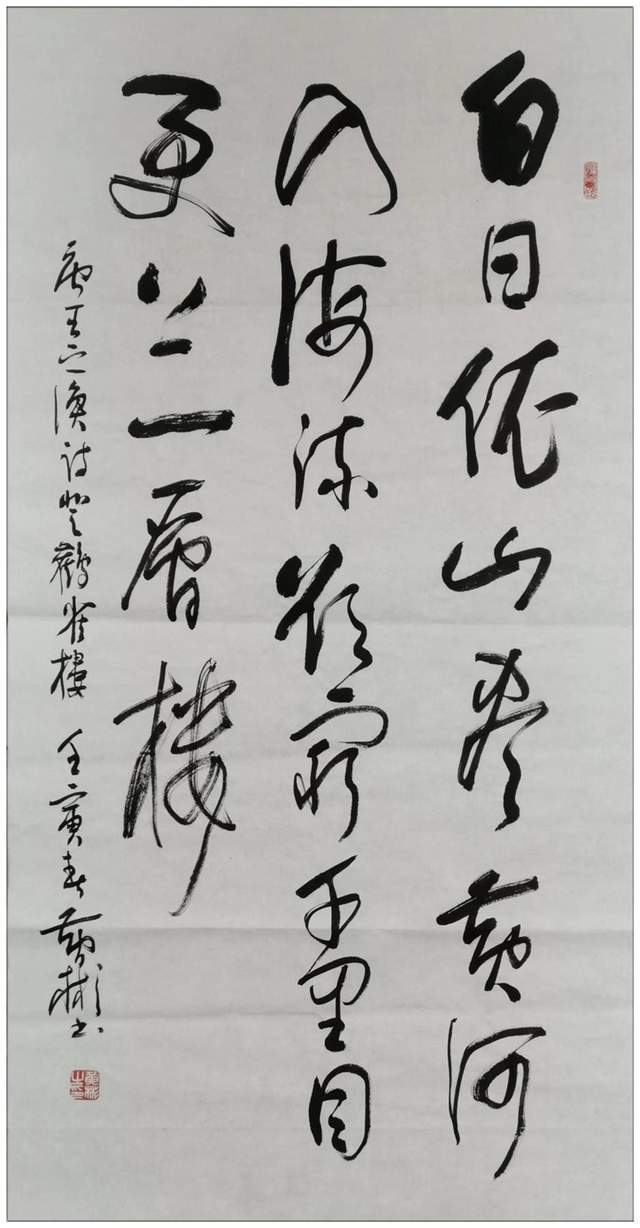 白日依山尽黄河
入海流欲穷千里目
更上一层楼
唐王之涣诗登鹳雀楼 壬寅春
书